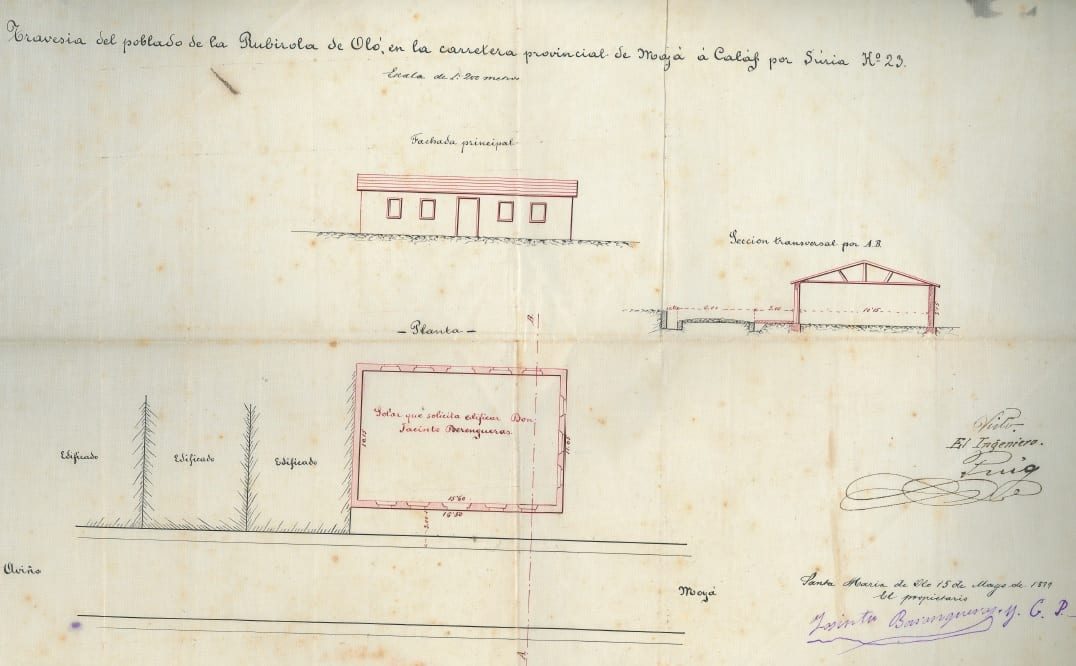 Travesia del poblado de la Rubirola de Oló, en la carretera provincial de Moyá á Calaf por Súria Nº 23.
Escala de 1: 200 metros
Fachada principal
Seccion transversal por A.B.
6.00
3.00
10'15
- Planta -
B
Solar que solicita edificar Don
Jacinto Berengueras
10.15
11.05
15'60
16'50
3.00
Edificado
Edificado
Edificado
Visto
El Ingeniero.
Puig
Aviño
Moyá
A
Santa Maria de Olo 15 de Mayo de 1899
El propietario
Jacinto Barengueras y. C. P.